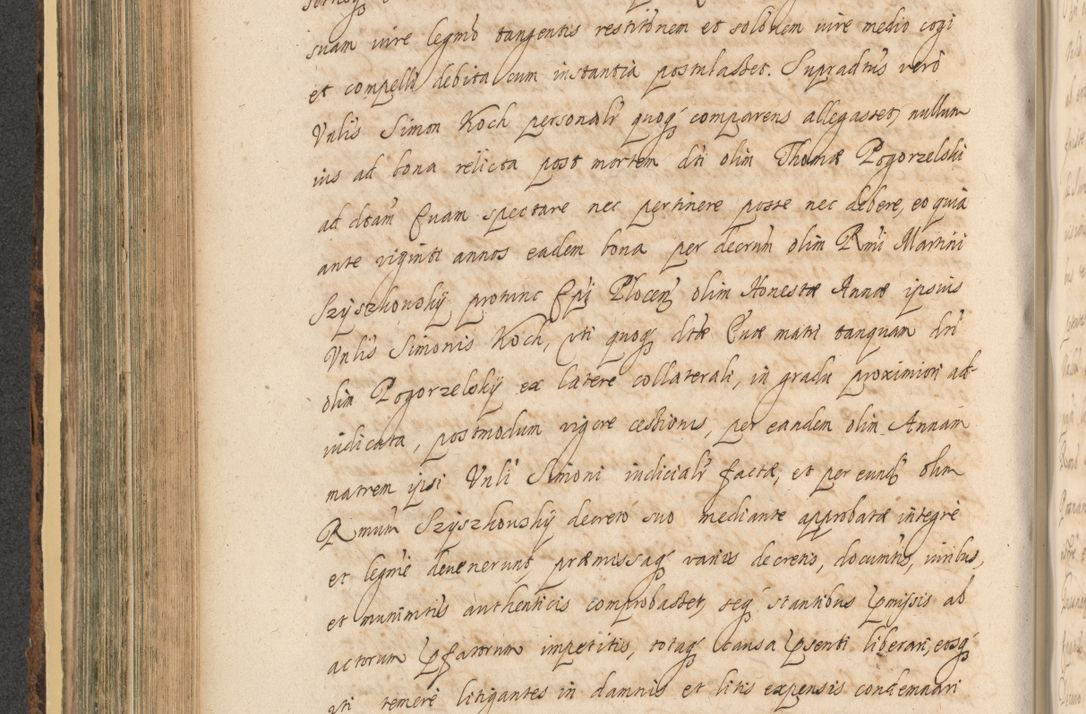 suam iure legmo tangentis restitonem et solonem iure medio cogi
et compelli debita cum instantia postulasset. Supradtus vero
Vnlis Simon Koch personalr quoq comparens allegasset, nullum
ius ad bona relicta post mortem dti olim Thomæ Pogorzelski
ad dtam Euam spectare nec pertinere posse nec debere, eo quia
ante viginti annos eadem bona per decrum olim Rmi Martini
Szyszkouskÿ protunc Epi Plocen olim Honestæ Annæ ipsius
Vnlis Simonis Koch, uti quoq dtæ Euæ matri tanquam dti
olim Pogorzelskÿ ex latere collaterali, in gradu proximiori ad-
iudicata, postmodum vigore cessionis, per eandem olim Annam
matrem ipsi Vnli Simoni iudicialr factæ, et per eund olim
Rmum Szyszkouskÿ decreto suo mediante approbatæ integre
et legme deuenerunt, præmissaq varis decretis, documtis, iuribus,
et munimtis authenticis comprobasset, seq stantibus pmissis ab
actorum pfatorum impetitis, totaq causa psenti liberari, eosq
uti temere litigantes in damnis et litis expensis condemnari